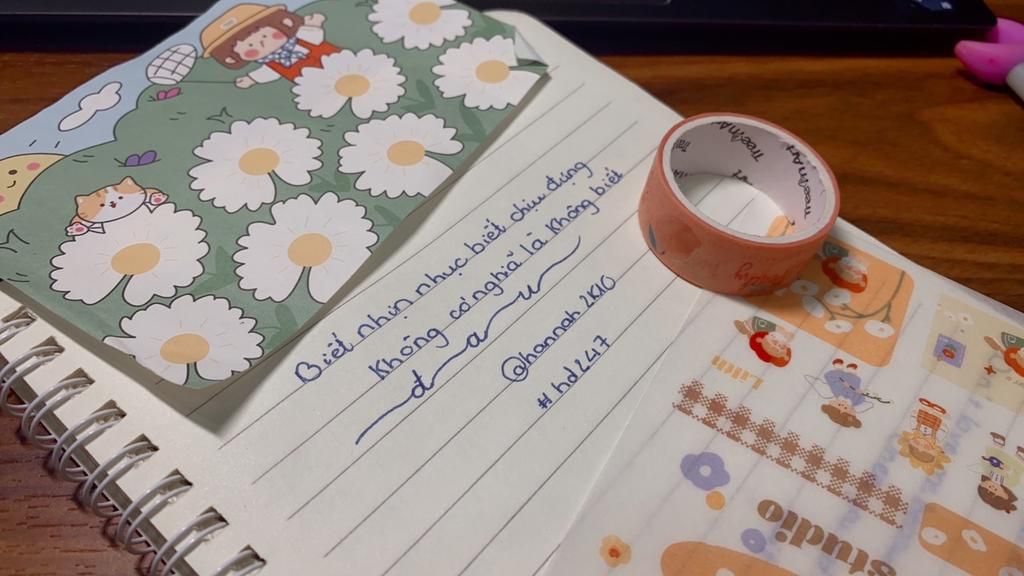 Biết nhịn nhục biết chịu đựng
Không có nghĩa là không biết
đau
@hannah2K10
#hd247
Lith
studio